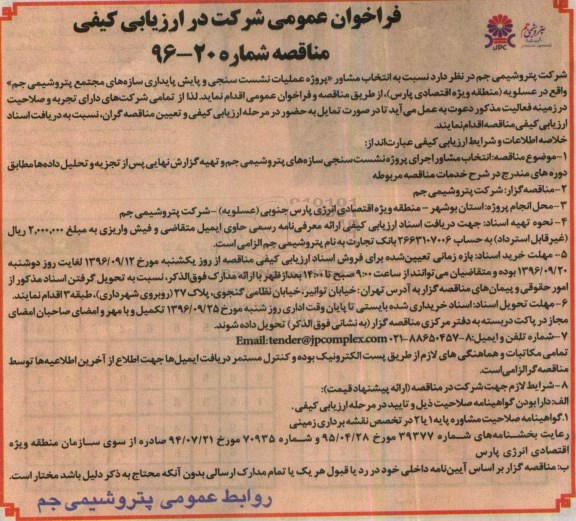 فراخوان عمومی شرکت در ارزیابی کیفی
مناقصه شماره ۲۰-۹۶
پتروشیمی جم
JPC
شرکت پتروشیمی جم در نظر دارد نسبت به انتخاب مشاور «پروژه عملیات نشست سنجی و پایش پایداری سازه‌های مجتمع پتروشیمی جم»
واقع در عسلویه (منطقه ویژه اقتصادی پارس)، از طریق مناقصه و فراخوان عمومی اقدام نماید. لذا از تمامی شرکت‌های دارای تجربه و صلاحیت
در زمینه فعالیت مذکور دعوت به عمل می‌آید تا در صورت تمایل به حضور در مرحله ارزیابی کیفی و تعیین مناقصه گران، نسبت به دریافت اسناد
ارزیابی کیفی مناقصه اقدام نمایند.
خلاصه اطلاعات و شرایط ارزیابی کیفی عبارت‌انداز:
۱-موضوع مناقصه: انتخاب مشاور اجرای پروژه نشست سنجی سازه‌های پتروشیمی جم و تهیه گزارش نهایی پس از تجزیه و تحلیل داده‌ها مطابق
دوره های مندرج در شرح خدمات مناقصه مربوطه
۲-مناقصه گزار: شرکت پتروشیمی جم
۳-محل انجام پروژه: استان بوشهر - منطقه ویژه اقتصادی انرژی پارس جنوبی (عسلویه) -شرکت پتروشیمی جم
۴-نحوه تهیه اسناد: جهت دریافت اسناد ارزیابی کیفی ارائه معرفی‌نامه رسمی حاوی ایمیل متقاضی و فیش واریزی به مبلغ ۲,۰۰۰,۰۰۰ ریال
(غیر قابل استرداد) به حساب ۲۶۶۳۱۰۷۰۰۶ بانک تجارت به نام پتروشیمی جم الزامی است.
۵-مهلت خرید اسناد: بازه زمانی تعیین‌شده برای فروش اسناد ارزیابی کیفی مناقصه از روز یکشنبه مورخ ۱۳۹۶/۰۹/۱۲ لغایت روز دوشنبه
۱۳۹۶/۰۹/۲۰ بوده و متقاضیان می‌توانند از ساعت ۹:۰۰ صبح تا ۱۴:۰۰ بعدازظهر با ارائه مدارک فوق‌الذکر، نسبت به تحویل گرفتن اسناد مذکور از
امور حقوقی و پیمان‌های مناقصه گزار به آدرس تهران: خیابان توانیر، خیابان نظامی گنجوی، پلاک ۲۷ (روبروی شهرداری)، طبقه ۳ اقدام نمایند.
۶-مهلت تحویل اسناد: اسناد خریداری شده بایستی تا پایان وقت اداری روز شنبه مورخ ۱۳۹۶/۰۹/۲۵ تکمیل و با مهر و امضای صاحبان امضای
مجاز در پاکت دربسته به دفتر مرکزی مناقصه گزار (به نشانی فوق‌الذکر) تحویل داده شوند.
۷-شماره تلفن و ایمیل: ۸-۸۸۶۵۰۴۵۷-۰۲۱ Email:tender@jpcomplex.com
تمامی مکاتبات و هماهنگی های لازم از طریق پست الکترونیک بوده و کنترل مستمر دریافت ایمیل‌ها جهت اطلاع از آخرین اطلاعیه‌ها توسط
مناقصه گر الزامی است.
۸-شرایط لازم جهت شرکت در مناقصه (ارائه پیشنهاد قیمت):
الف: دارا بودن گواهینامه صلاحیت ذیل و تایید در مرحله ارزیابی کیفی.
۱.گواهینامه صلاحیت مشاوره پایه ۱ یا ۲ در تخصص نقشه برداری زمینی
رعایت بخشنامه‌های شماره ۳۹۳۷۷ مورخ ۹۵/۰۴/۲۸ و شماره ۷۰۹۳۵ مورخ ۹۴/۰۷/۲۱ صادره از سوی سازمان منطقه ویژه
اقتصادی انرژی پارس
ب: مناقصه گزار بر اساس آیین‌نامه داخلی خود در رد یا قبول هر یک یا تمام مدارک ارسالی بدون آنکه محتاج به ذکر دلیل باشد مختار است.
روابط عمومی پتروشیمی جم